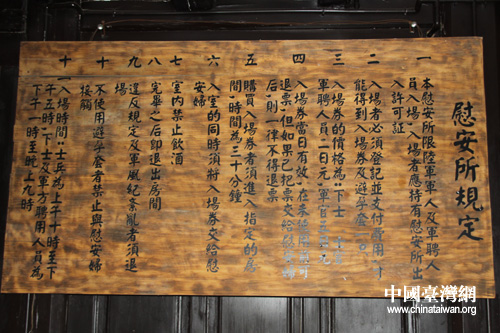 慰安所規定
一 本慰安所限陸軍軍人及軍聘人
員入場、入場者應持有慰安所出
入許可証
二 入場者必須登記並支付費用、才
能得到入場券及避孕套一只
三 入場券的價格為:下士
軍聘人員二日元、軍官
四 入場券當日有效、
退票、但如果已把票交給慰安婦
后、則一律不得退票
五 購買入場券者須進入指定的房
間、時間為三十分鐘
六 入室的同時須將入場券交給慰
安婦
七 室内禁止飲酒
八 完畢之后即退出房間
九 違反規定及軍風紀紊亂者須退
場
十 不使用避孕套者禁止與慰安婦
接觸
十一 入場時間:士兵為上午十時至下
午五時、下士及軍方聘用人員為
下午一時至晚上九時
中國臺灣網
www.chinataiwan.org